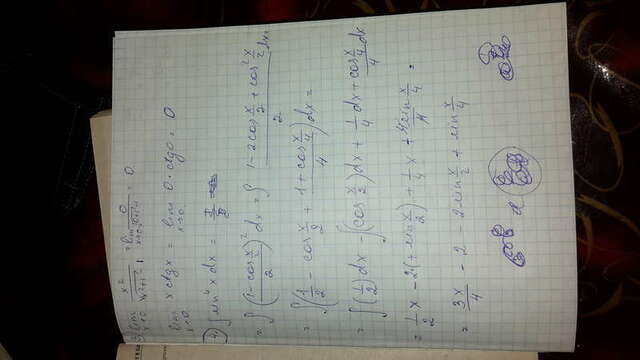 3) lim x→0 x² / √(x²+1) - 1 = lim x→0 0 / √(0+1) - 1 = 0
lim x→0 x ctg x = lim x→0 0 · ctg 0 = 0
4) ∫ sin⁴ x dx =
= ∫ (1 - cos x/2)² / 2 dx = ∫ 1 - 2cos x/2 + cos² x/2 / 2 dx
= ∫ (1/2 - cos x/2 + 1 + cos x/4 / 4) dx =
= ∫ (1/2) dx - ∫ (cos x/2) dx + 1/4 dx + cos x/4 / 4 dx
= 1/2 x - 2 (+ sin x/2) + 1/4 x + 4 sin x/4 / 4 =
= 3x/4 - 2 - 2 sin x/2 + sin x/4